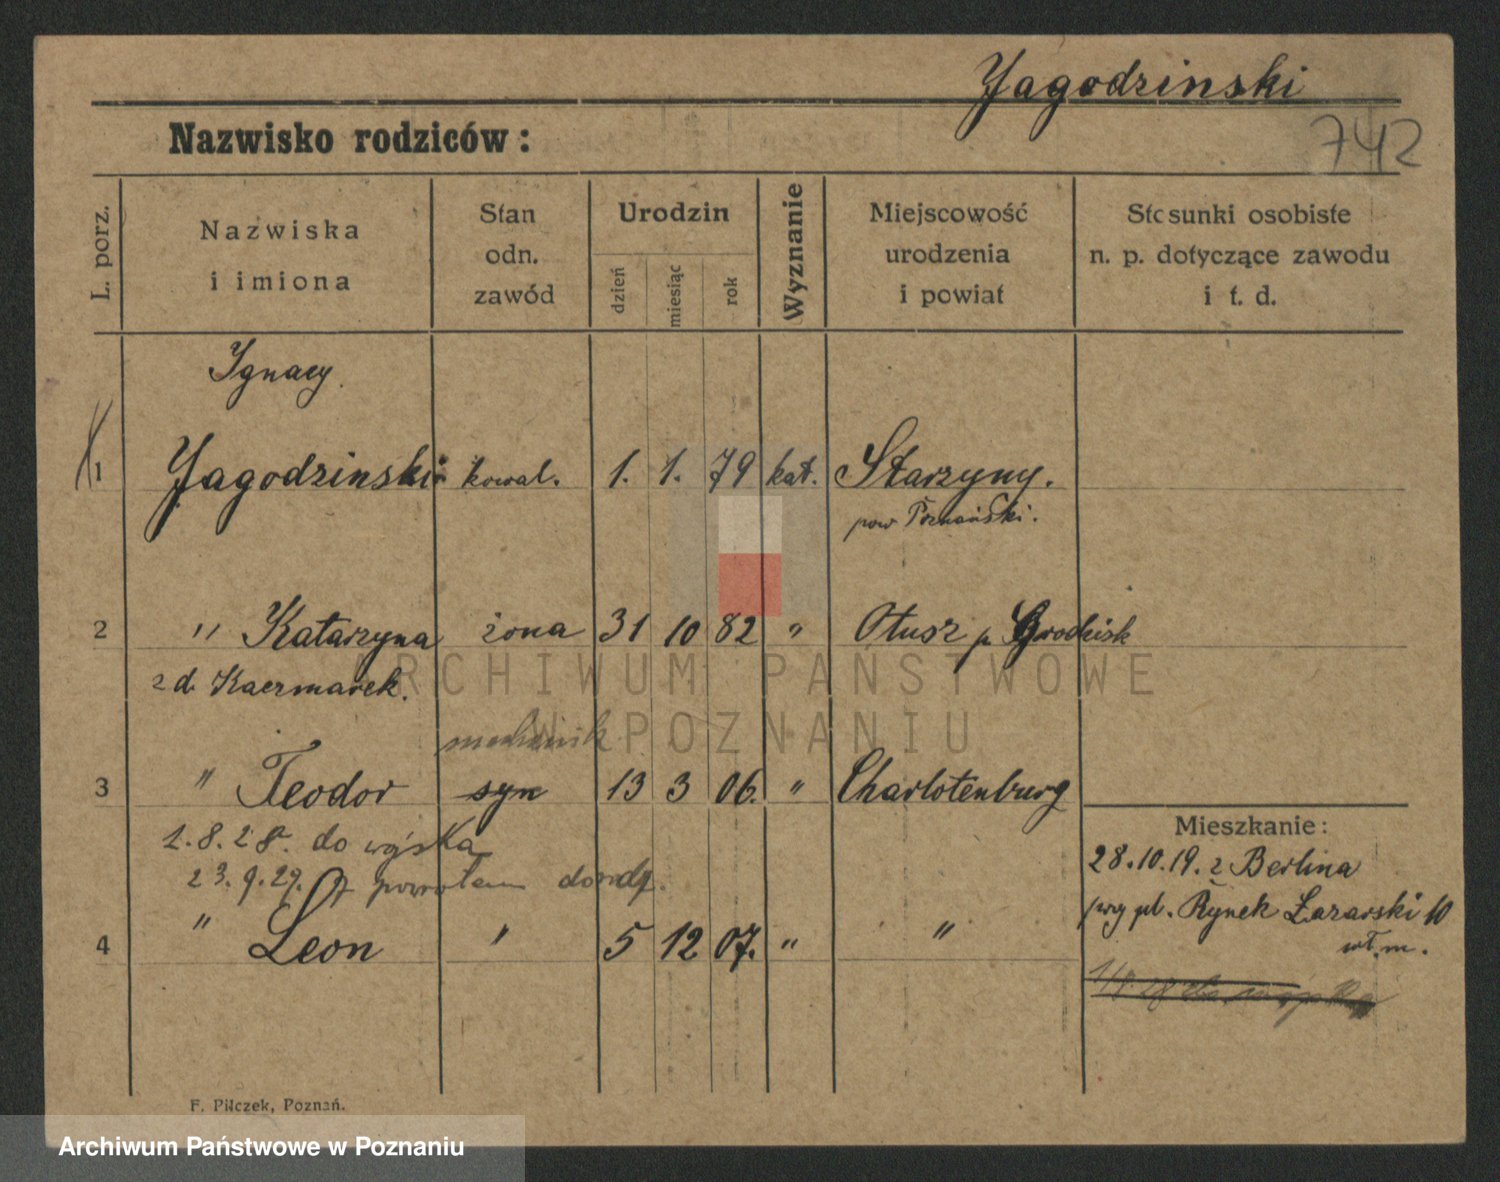 Jagodzinski
742
Nazwisko rodziców:
L. porz.
Nazwiska
i imiona
Stan
odn.
zawód
Urodzin
dzień
miesiąc
rok
Wyznanie
Miejscowość
urodzenia
i powiat
Stosunki osobiste
n. p. dotyczące zawodu
i t. d.
Ignacy.
1 Jagodzinski kowal. 1. 1. 79 kat. Starzyny.
pow Poznański.
2 " Katarzyna żona 31 10 82 " Otusz p Grodzisk
z d. Kaczmarek.
mechanik
3 " Teodor syn 13 3 06. " Charlotenburg
1.8.28. do wojska
23.9.29. z powrotem
4 " Leon " 5 12 07. " "
Mieszkanie:
28.10.19. z Berlina
pl. Rynek Łazarski 10
wł. m.
F. Pilczek, Poznań.
ARCHIWUM PAŃSTWOWE
W POZNANIU
Archiwum Państwowe w Poznaniu